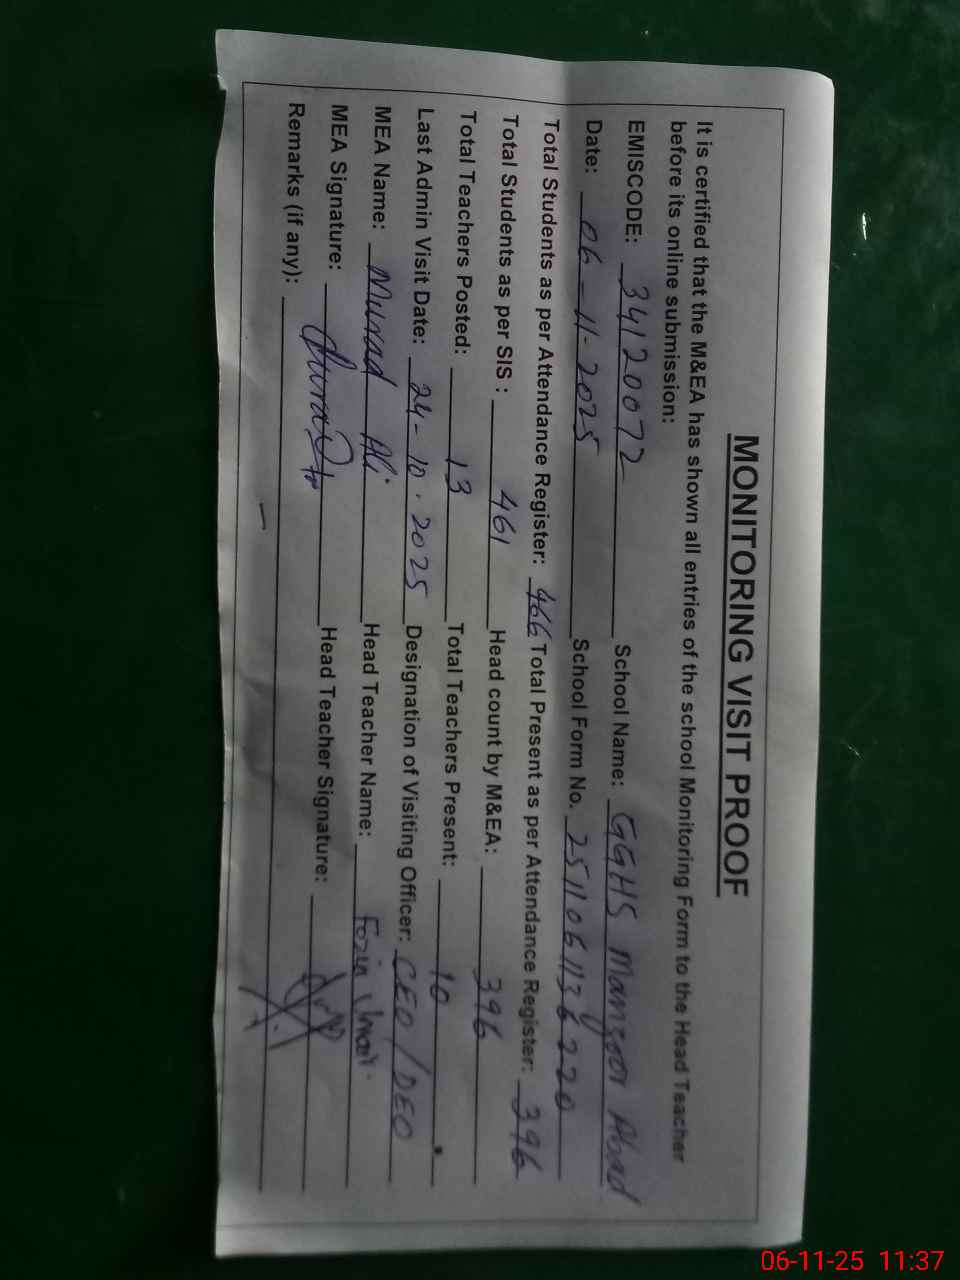 MONITORING VISIT PROOF
It is certified that the M&EA has shown all entries of the school Monitoring Form to the Head Teacher
before its online submission:
EMISCODE: 34120072 School Name: GGHS Mansoor Abad
Date: 06-11-2025 School Form No. 2511061136220
Total Students as per Attendance Register: 466 Total Present as per Attendance Register: 396
Total Students as per SIS : 461 Head count by M&EA: 396
Total Teachers Posted: 13 Total Teachers Present: 10
Last Admin Visit Date: 24-10.2025 Designation of Visiting Officer: CEO/DEO
MEA Name: Murad Ali Head Teacher Name: Fozia
MEA Signature: Head Teacher Signature:
Remarks (if any):
06-11-25 11:37